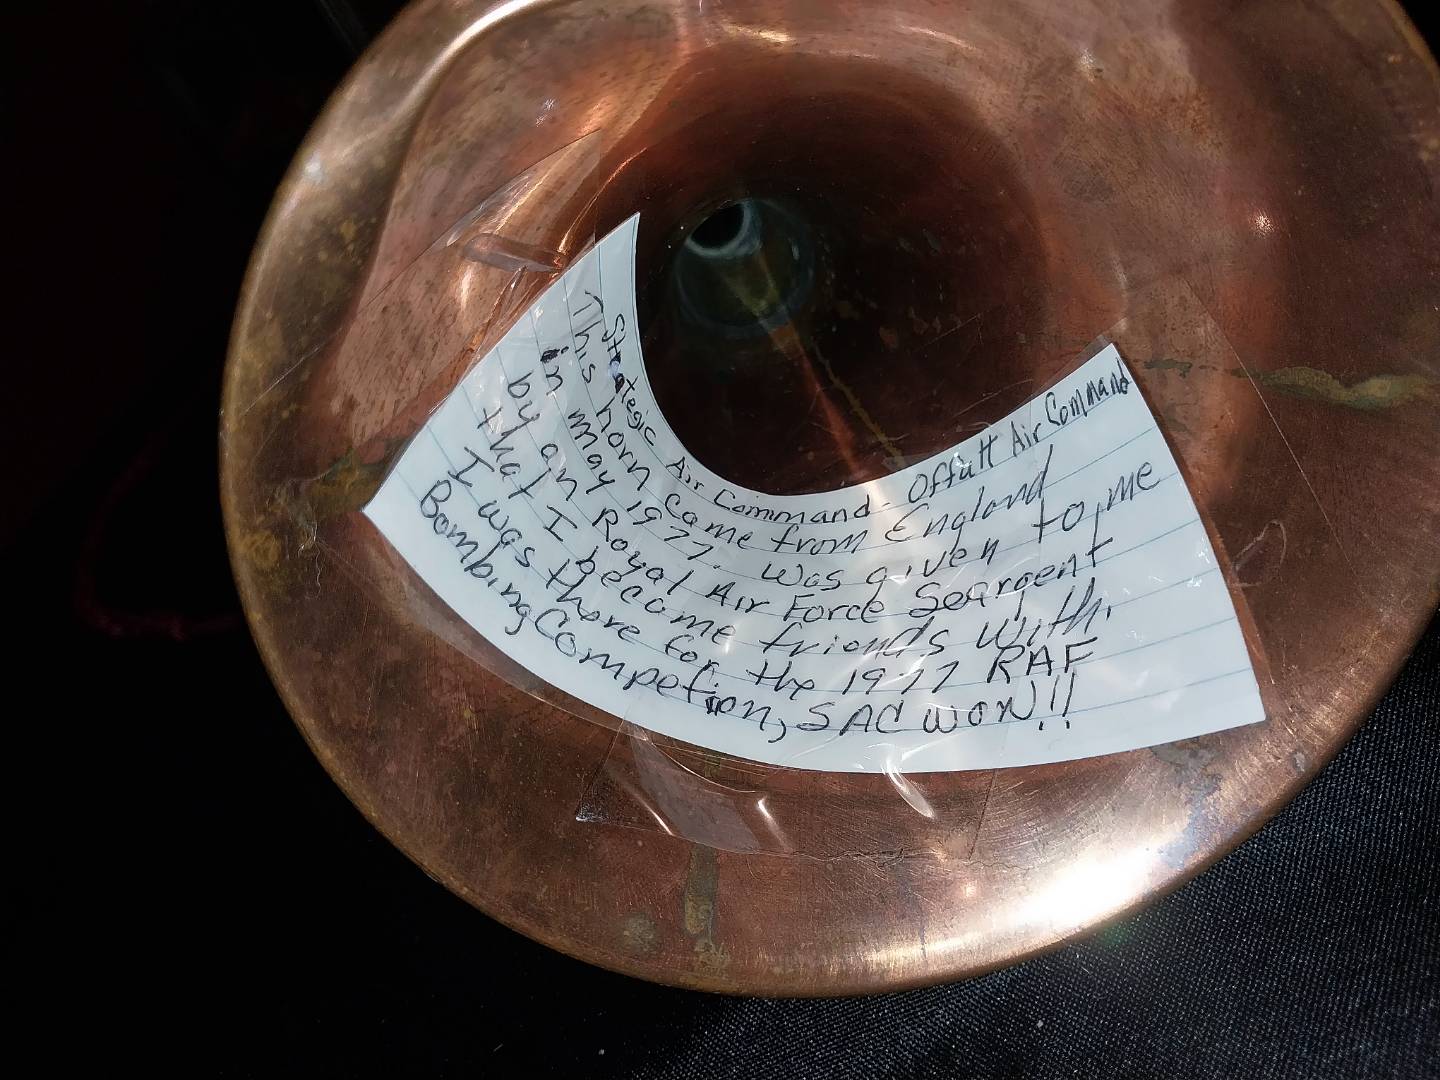 Strategic Air Command - Offutt Air Command
This horn came from England
in may 1977. was given to me
by an Royal Air Force Seargent
that I become friends with.
I was there for the 1977 RAF
Bombing Competion, SAC WON!!